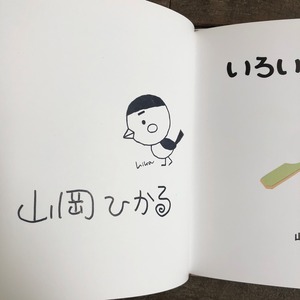 山岡ひかる
いろい
山